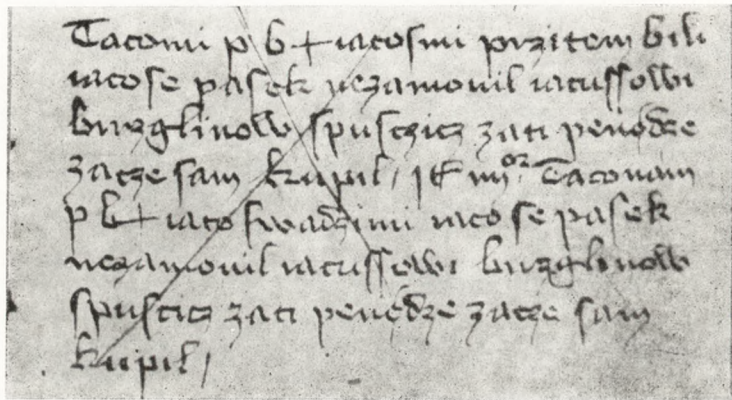 Tacomi p b + iacosmi przitem bili
iacose pasek nezamouil iacussowi
burzglinow spusczicz zati penødze
zacze sam kupil / It iiii^or Taconam
p b + iaco swadzimi iaco se pasek
nezamouil iacussowi burzglinow
spuscicz zati penødze zacze sam
kupil /